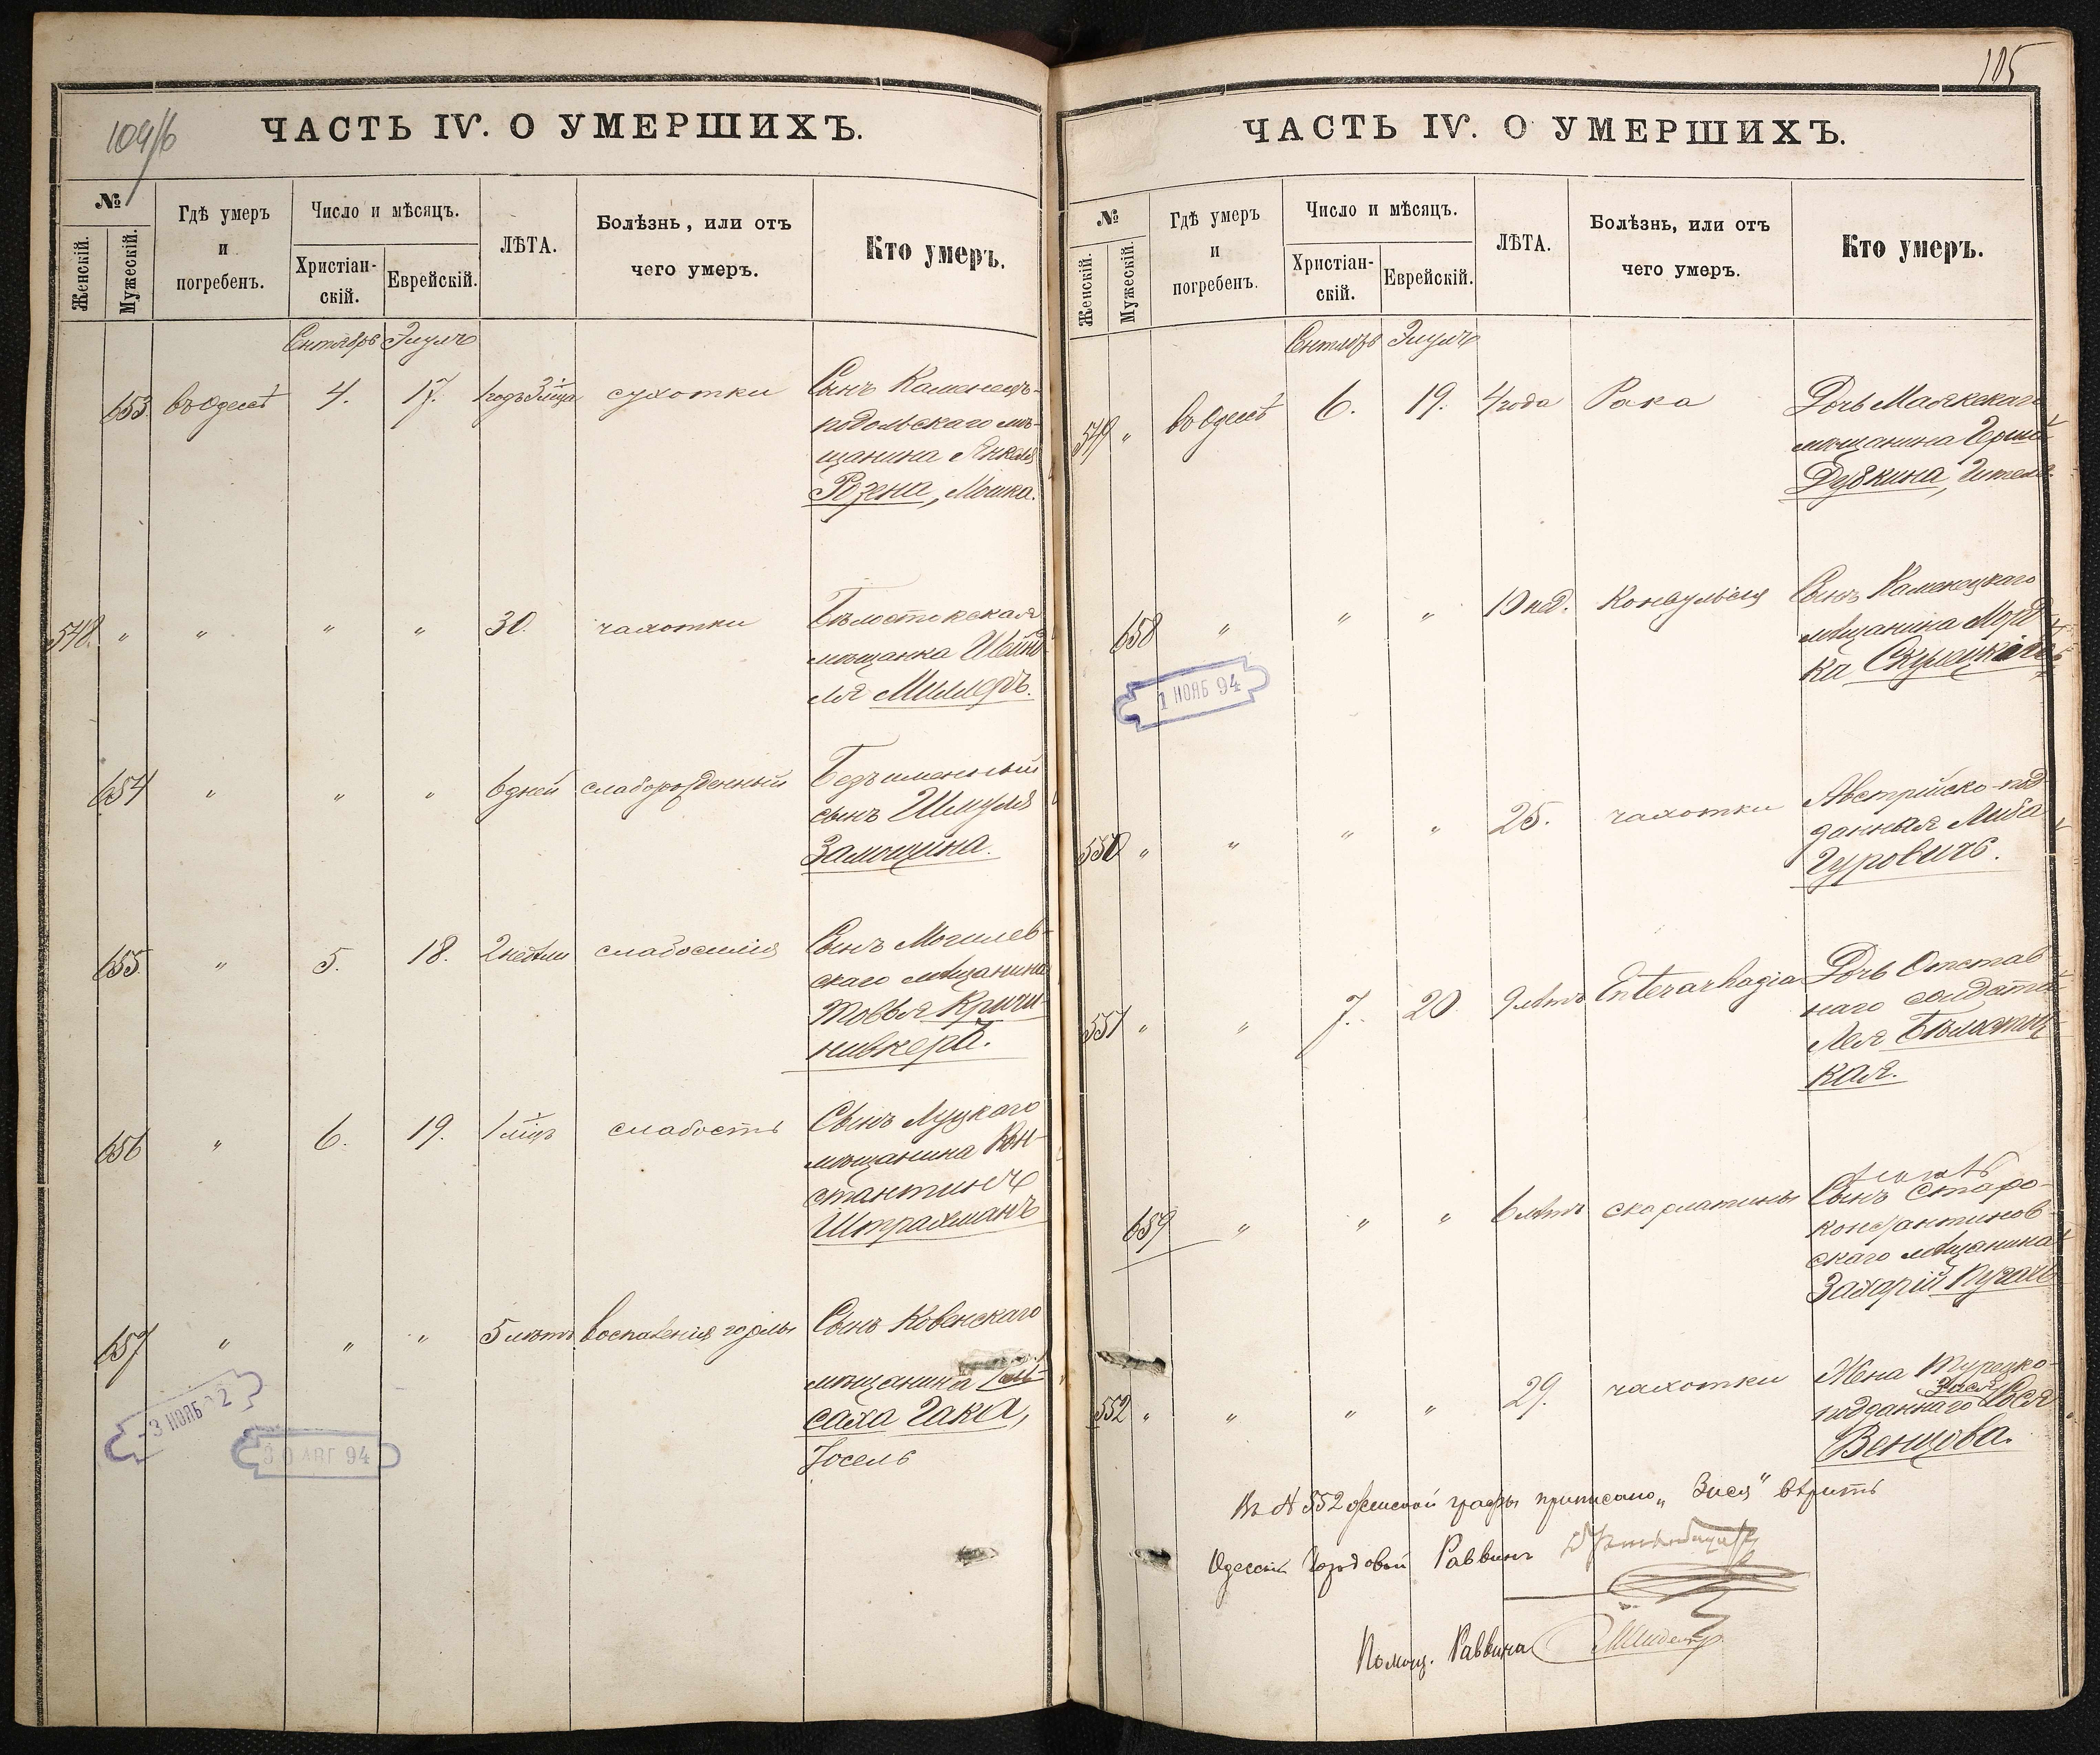 104/б
ЧАСТЬ IV. О УМЕРШИХЪ.
№
Женскій.
Мужескій.
Гдѣ умеръ
и
погребенъ.
Число и мѣсяцъ.
Христіан-
скій.
Еврейскій.
ЛѢТА.
Болѣзнь, или отъ
чего умеръ.
Кто умеръ.
Сентябрь Элулъ
653 въ Одессѣ 4. 17. 1 годъ 3 мца сухотки Сынъ Каменецъ-
подольскаго мѣ-
щанина Янкеля
Розена, Мошка.
548. " " " " 30. чахотки Бѣлостокская
мѣщанка Шейн-
ля Миллеръ.
654 " " " 6 дней слаборожденный Безъименный
сынъ Шмуля
Замощина.
655. " 5. 18. 2 недѣли Сынъ Могилев-
скаго мѣщанина
Товья Кричи-
нивкеръ.
656 " 6. 19. 1 мцъ слабость Сынъ Луцкаго
мѣщанина Кон-
стантинъ
Штрахманъ
657 " " " 5 лѣтъ воспаленія горлы Сынъ Ковенскаго
мѣщанина
саха Гака,
Іосель
3 НОЯБ 2
30 АВГ 94
105
ЧАСТЬ IV. О УМЕРШИХЪ.
№
Женскій.
Мужескій.
Гдѣ умеръ
и
погребенъ.
Число и мѣсяцъ.
Христіан-
скій.
Еврейскій.
ЛѢТА.
Болѣзнь, или отъ
чего умеръ.
Кто умеръ.
Сентябрь Элулъ
549 " въ Одессѣ 6. 19. 4 года Рака Дочь Маякскаго
мѣщанина Герша
Дубкина, Гитель.
658 " " " 10 нед. Конвульсія Сынъ Каменецкаго
мѣщанина Морд-
ка
1 НОЯБ 94
550 " " " " 25. чахотки Австрійско-под-
данная Либа
Гуровичъ.
551 " " 7. 20. 9 лѣтъ Enterarhagia Дочь Отстав-
наго солдата
Лея
кая.
659 " " " 6 лѣтъ скарлатины Сынъ Старо-
константинов-
скаго мѣщанина
Захарій Пугачъ
552 " " " " 29. чахотки Жена Турецко-
Зися
подданнаго Рося
Венцова.
Въ № 552 женской графы приписано „Зися" вѣрить
Одесскій Городовой Раввинъ
Помощ. Раввина